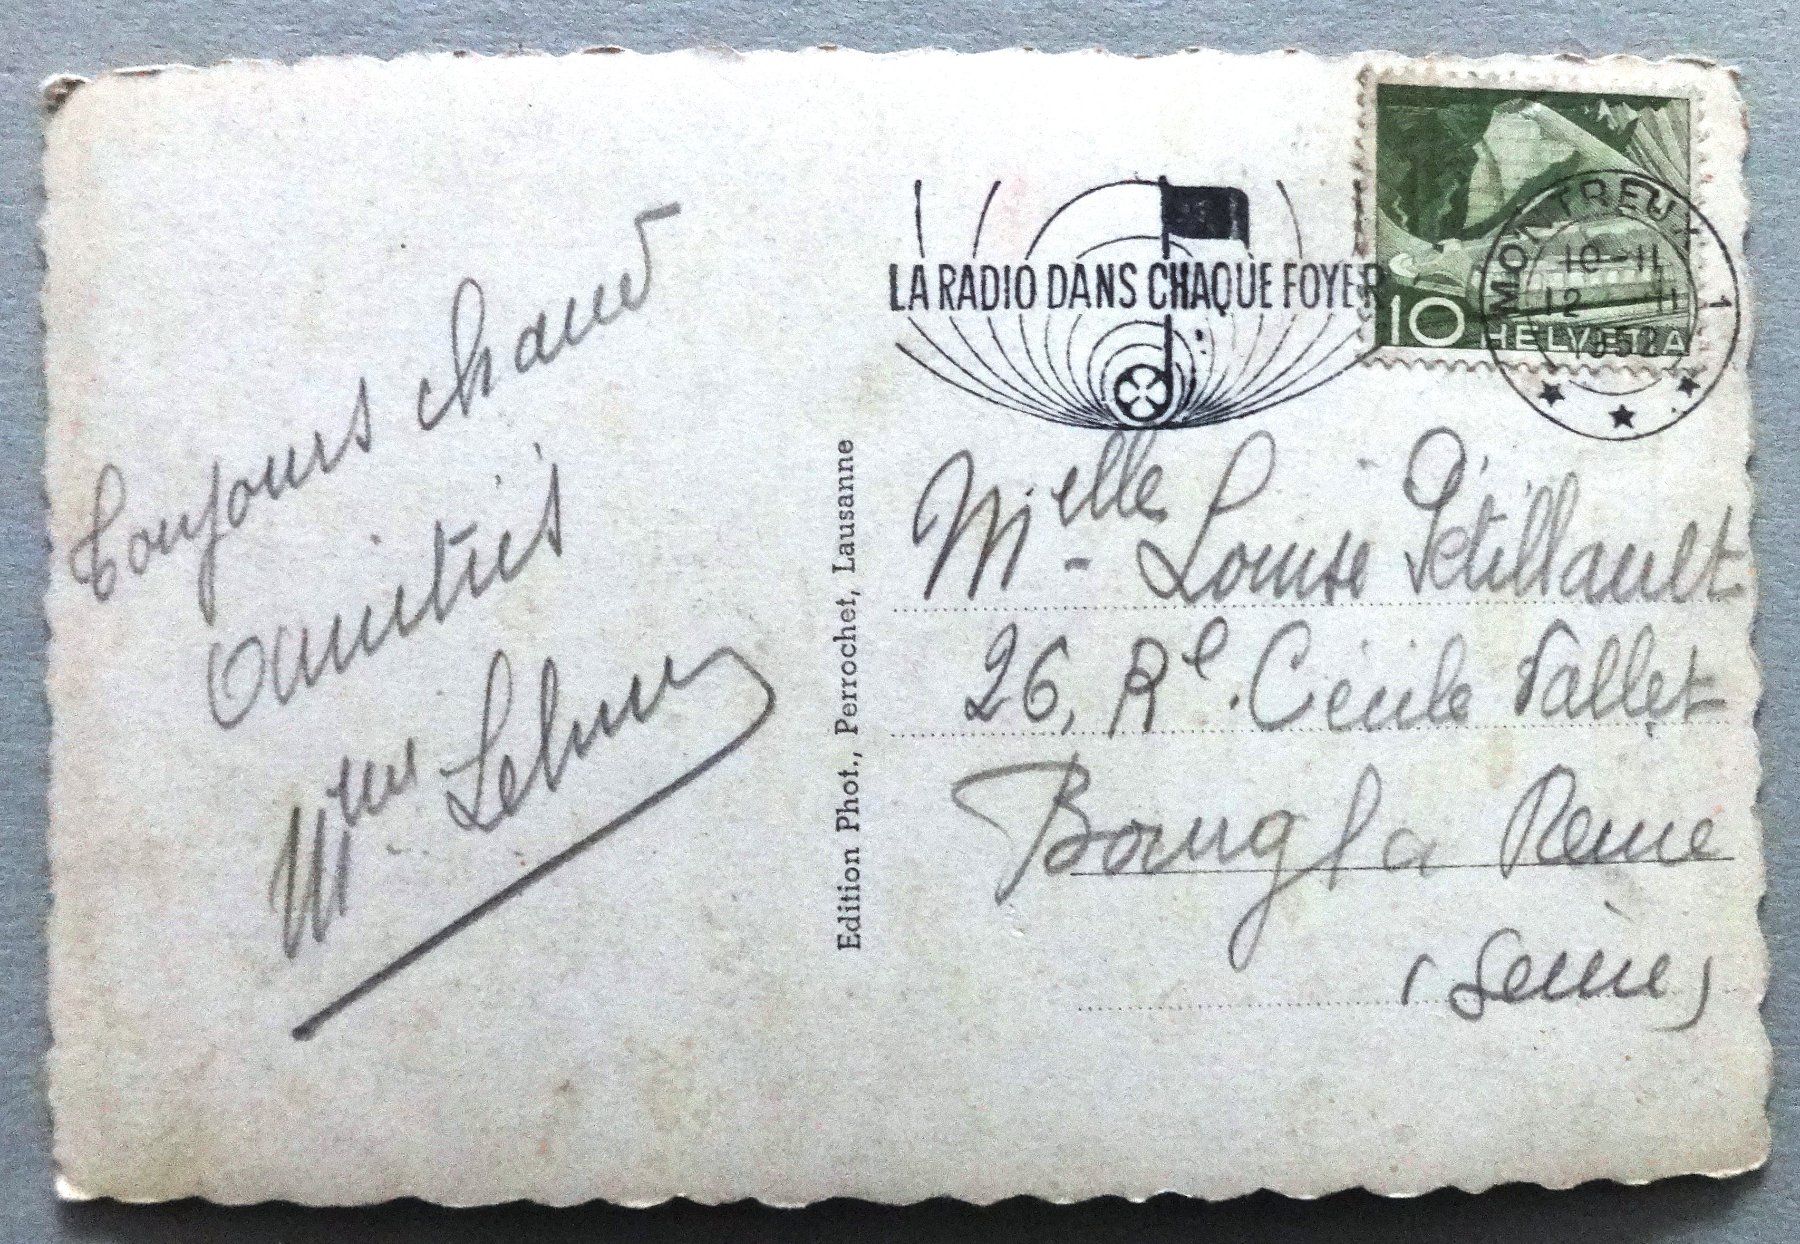 Toujours chaud
amitiés
Mme Lehm
Edition Phot., Perrochet, Lausanne
LA RADIO DANS CHAQUE FOYER
10 HELVETIA
MONTREUX 1
10-11
12 11
1952
Melle Louise Pétillault
26, Re. Cécile Vallet
Bourg la Reine
(Seine)